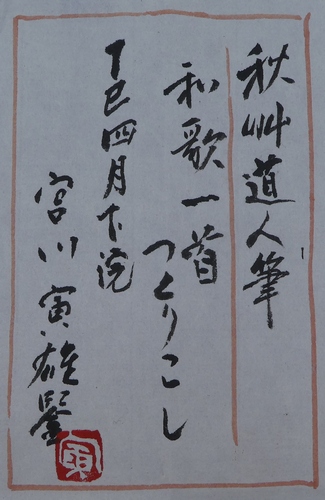 秋艸道人筆
和歌一首
つくりこし
丁巳四月下浣
宮川寅雄鑒
寅